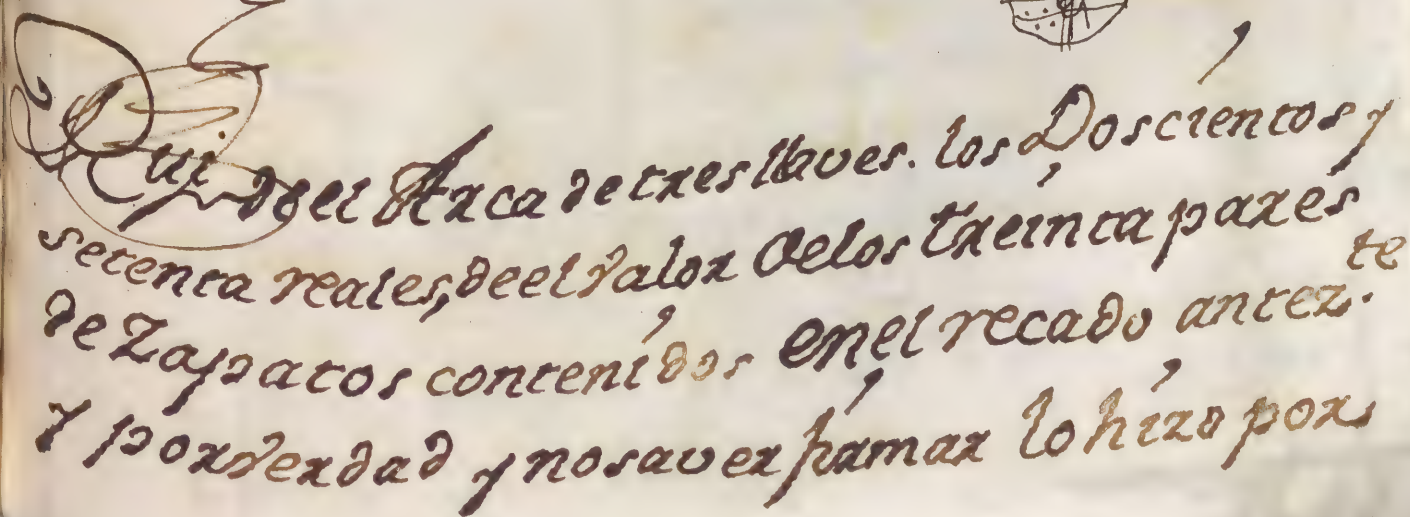 Rui del Arca de tres llaves. los Doscientos y
setenta reales, de el valor de los treinta pares
de Zapatos contenidos en el recado antez.te
y por verdad y no saver firmar lo hizo por